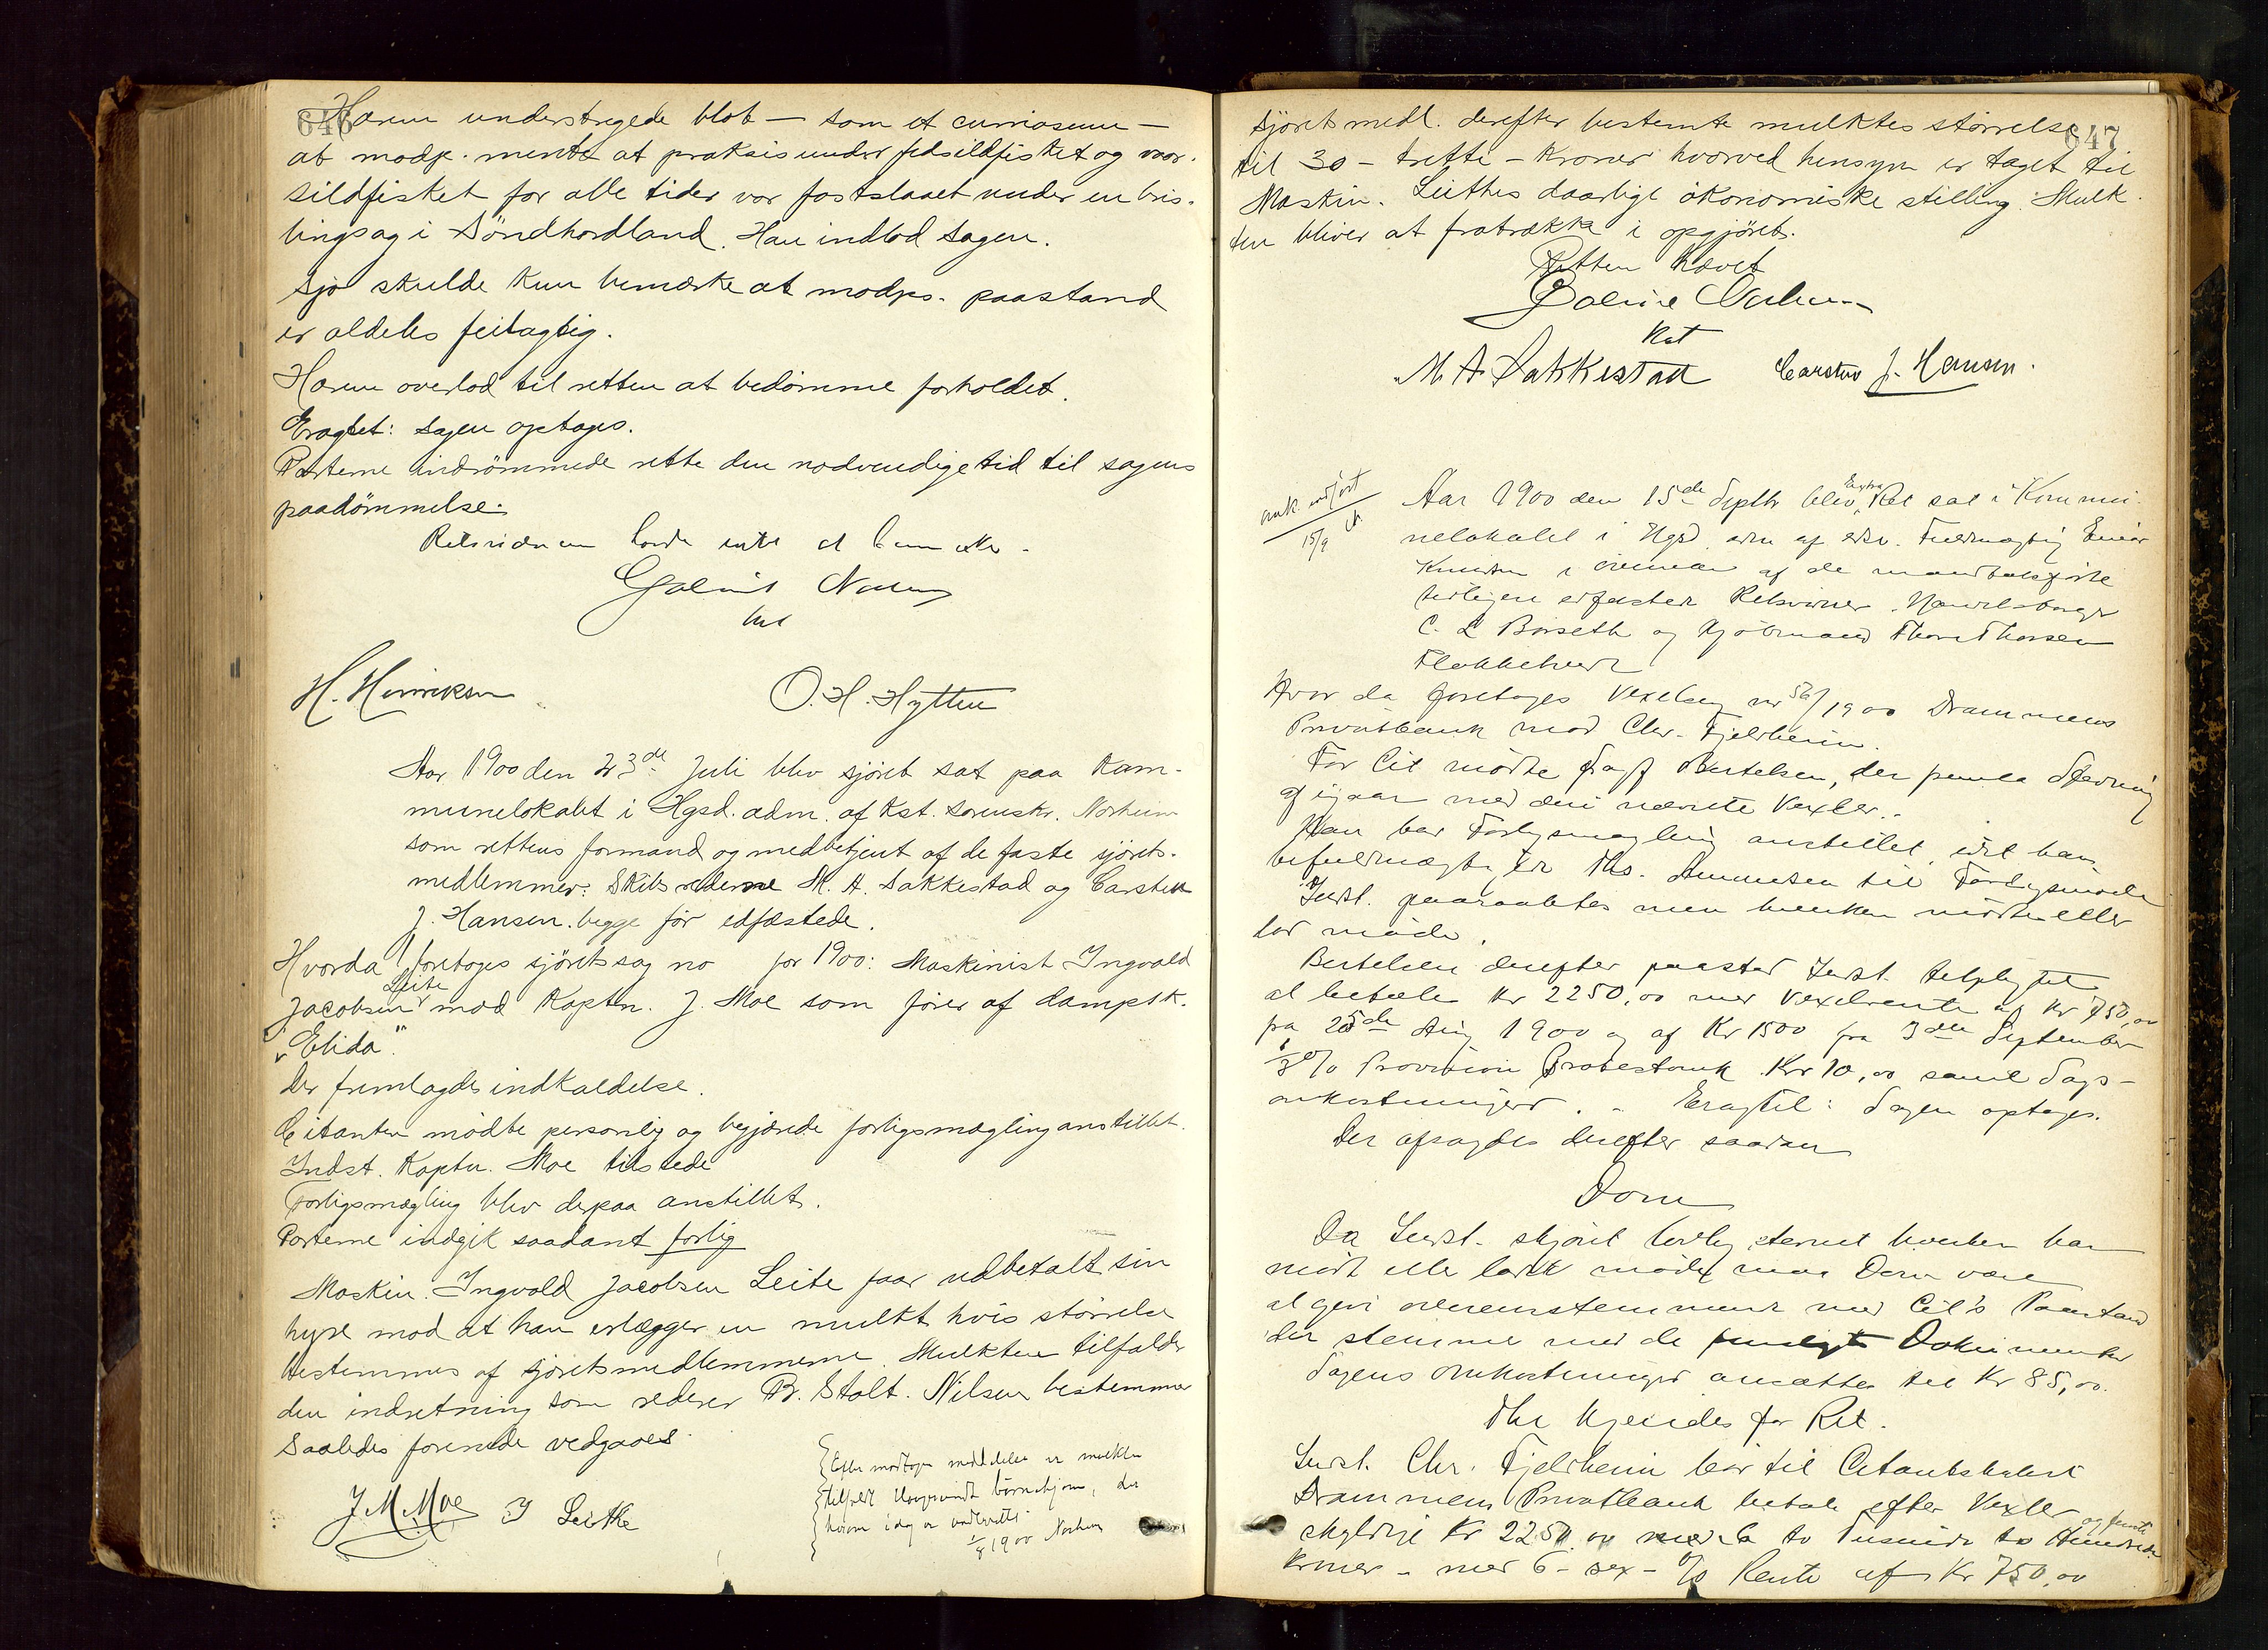 646
Harm understregede blot — som et curiosum —
at modp. mente at praksis under fedsildfisket og vaar-
sildfisket for alle tider var fastslaaet under en bris-
lingsag i Söndhordland. Han indlod sagen.
Sjø skulde kun bemærke at modps. paastand
er aldeles feilagtig.
Harm overlod til retten at bedömme forholdet.
Eragtet: sagen optages.
Parterne indrömmede rette den nødvendige tid til sagens
paadömmelse.
Retsvidnerne havde intet at bemærke.
kst
H. Henriksen O. H. Hytten
Aar 1900 den 23de Juli blev sjöret sat paa Kom-
munelokalet i Hgsd. adm. af kst. sorenskr. Norheim
som rettens formand og medbetjent af de faste sjörets-
medlemmer: Skibsrederne M. A. Sakkestad og Carsten
J. Hansen. begge før edfæstede.
Hvorda foretoges sjöretssag no for 1900: Maskinist Ingvald
Jacobsen Leite mod Kaptn. J. Moe som fører af dampsk.
"Elida".
Der fremlagdes indkaldelse.
Citanten mödte personlig og begjærede forligsmægling anstillet.
Indst. Kaptn. Moe tilstede
Forligsmægling blev derpaa anstillet.
Parterne indgik saadant forlig
Maskin. Ingvald Jacobsen Leite faar udbetalt sin
hyre mod at han erlægger en mulkt hvis størrelse
bestemmes af sjöretsmedlemmerne. Mulkten tilfalder
den indretning som rederen B. Stolt. Nilsen bestemmer
Saaledes forenede vedgaaes.
J M Moe I Leithe
Efter modtagen meddelelse er mulkten
tilfaldt Haugesunds børnehjem, der
herom idag er underrettet.
1/8 1900 Norheim
647
Sjøretsmedl. derefter bestemte mulktes størrelse
til 30 - tretti - kroner hvorved hensyn er taget til
Maskin. Leithes daarlige ökonomiske stilling. Mulk-
ten bliver at fratrække i opgjöret.
Retten hævet
kst
M. A. Sakkestad Carsten J. Hansen.
ank. indført
15/9
Aar 1900 den 15de Septbr blev Extra Ret sat i Kommu-
nelokalet i Hgsd. adm af edsv. Fuldmægtig Einar
Knudsen i overvær af de mandtalsførte
tidligere edfæstede Retsvidner. Handelsborger
C. L Børseth og Kjöbmand Thore Thorsen
Flokketvedt
Hvor da foretoges Vexelsag nr 56/1900 Drammens
Privatbank mod Chr. Fjeldheim.
For Cit mödte Sagf Bertelsen, der fremla Stevning
af igaar med deri nævnte Vexler.
Han bar Forligsmægling anstillet, idet han
befuldmægtiger Ths. Amundsen til Forligsmøde
Indst. paaraabtes men hverken mödte eller
lod møde.
Bertelsen derefter paastod Indst. tilpligtet
at betale Kr 2250,00 med Vexelrente af Kr 750,00
fra 25de Aug 1900 og af Kr 1500 fra 3die September
1/3 % Provision Protestomk. Kr 10,00 samt Sags-
omkostninger. - Eragtet: Sagen optages.
Der afsagdes derefter saadan
Dom
Da Indst. skjönt lovlig stevnet hverken har
mödt eller ladet møde, maa Dom være
at give overensstemmende med Cit's Paastand
der stemme med de fremlagte Dokumenter
Sagens Omkostninger ansættes til Kr 85,00.
Thi Kjendes for Ret.
Indst. Chr. Fjeldheim bør til Citantskabet
Drammens Privatbank betale efter Vexler
skyldige Kr 2250.00 to Tusinde to Hundrede og femti
Kroner - med 6 - sex - % Rente af Kr 750,00